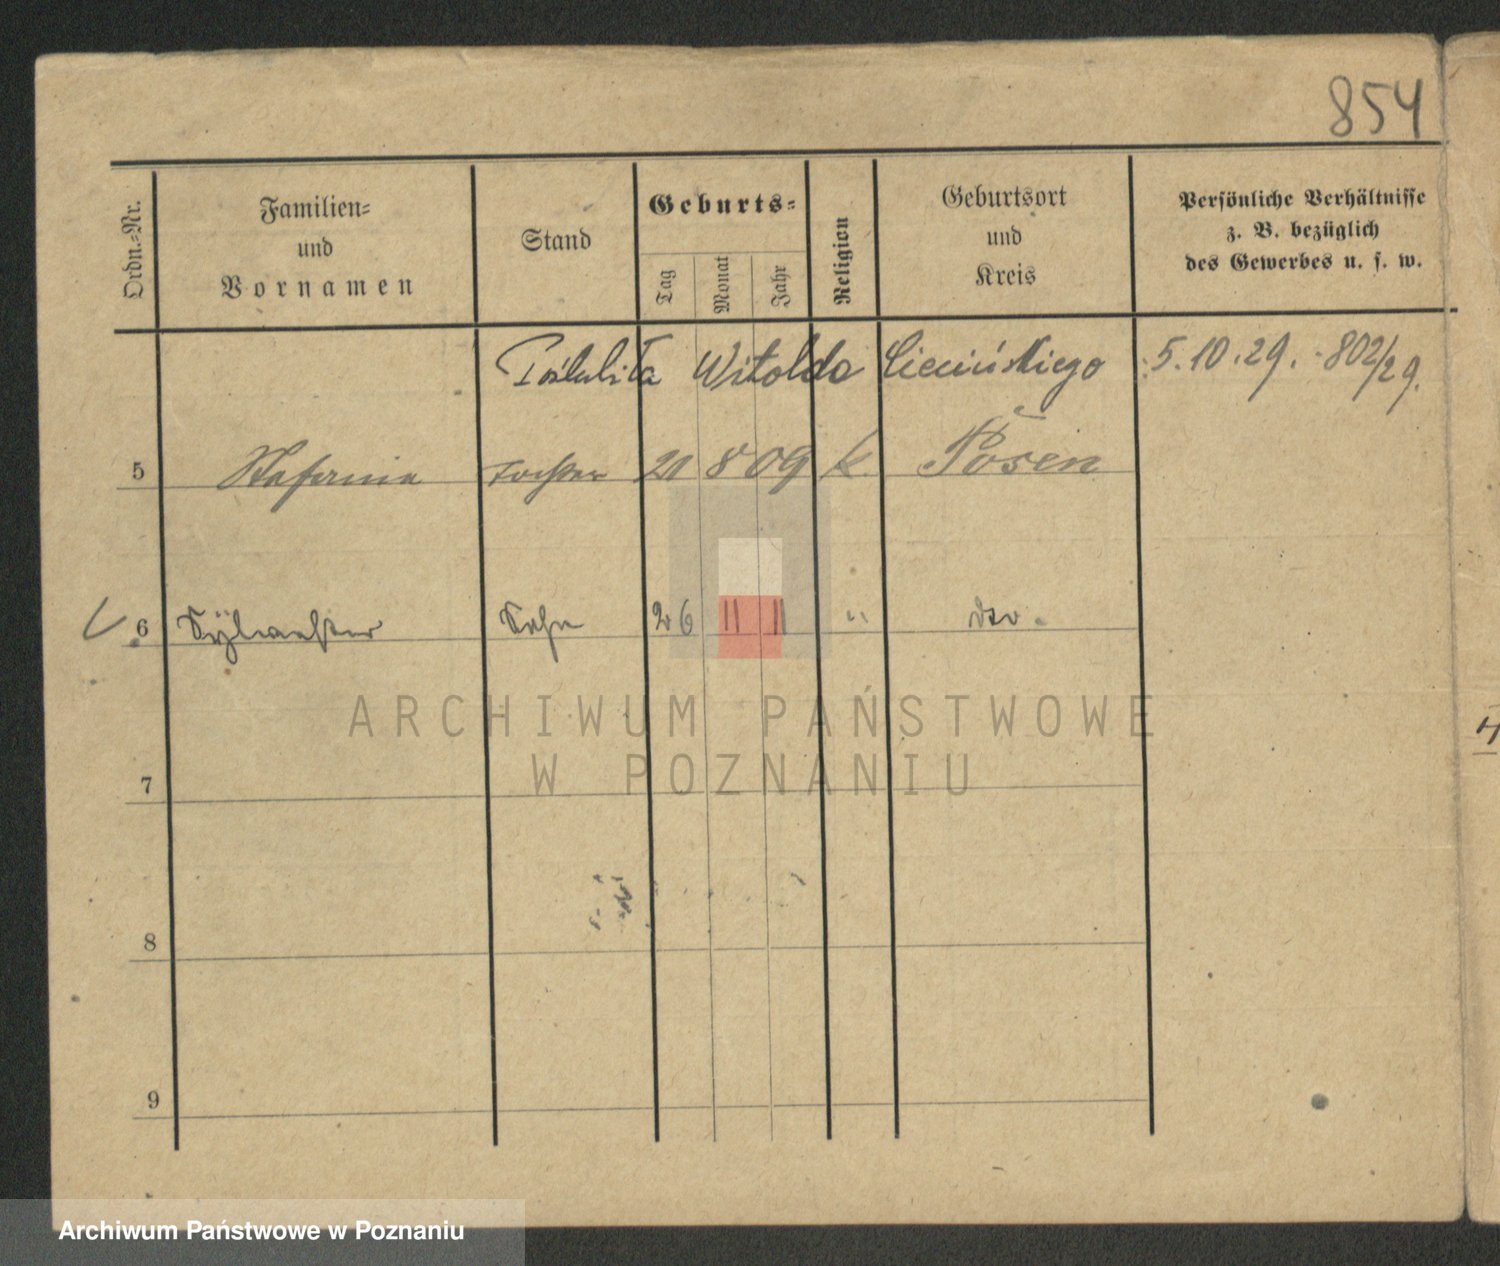 854
Ordn.-Nr.
Familien-
und
Vornamen
Stand
Geburts-
Tag
Monat
Jahr
Religion
Geburtsort
und
Kreis
Persönliche Verhältnisse
z. B. bezüglich
des Gewerbes u. s. w.
Witolda 5.10.29. 802/29.
5 Tochter 21 8 09 k Posen
6 Sylvester Sohn 26 11 11 " dto.
ARCHIWUM PAŃSTWOWE
W POZNANIU
7
8
9
Archiwum Państwowe w Poznaniu